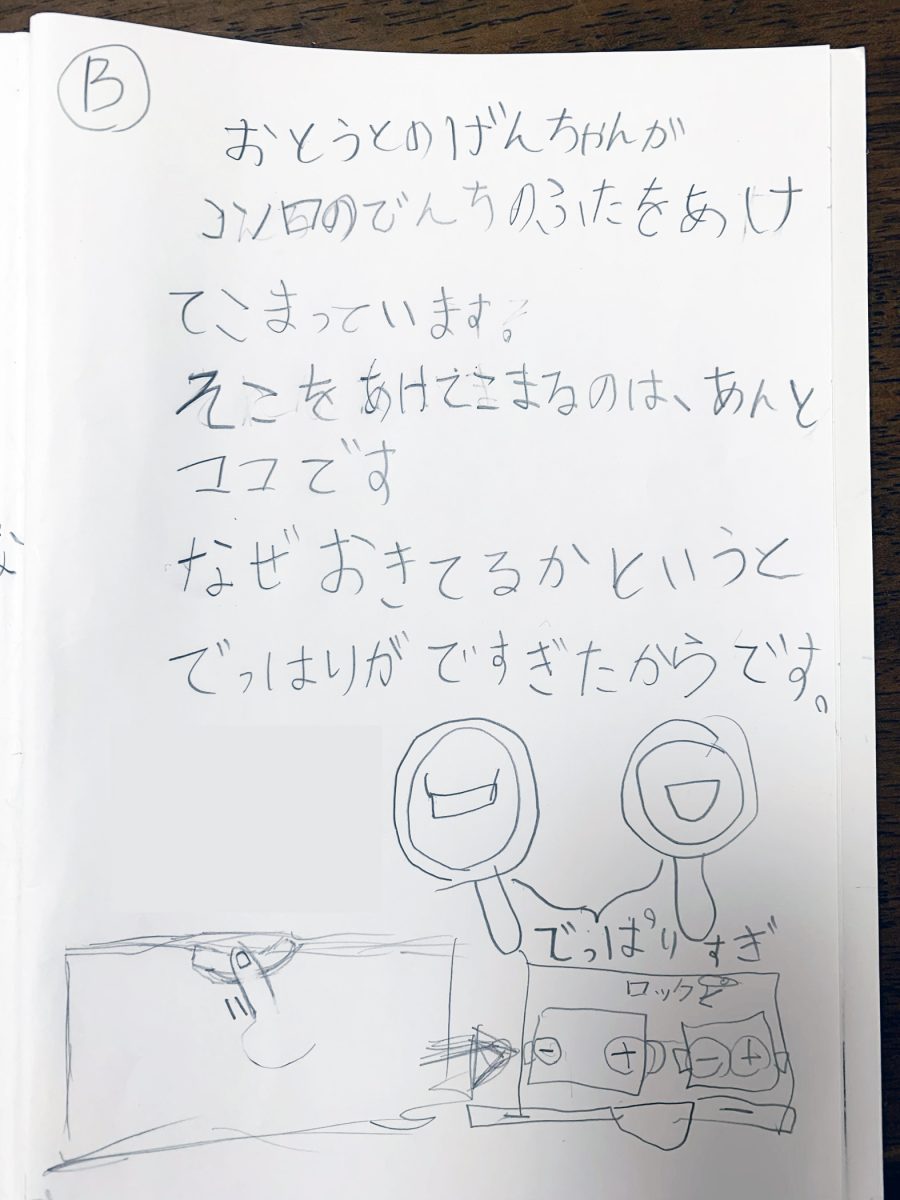 B
おとうとのげんちゃんが
コンロのでんちのふたをあけ
てこまっています。
そこをあけてこまるのは、あんと
ココです
なぜおきてるかというと
でっはりがですぎたからです。
でっぱりすぎ
ロック
- + - +